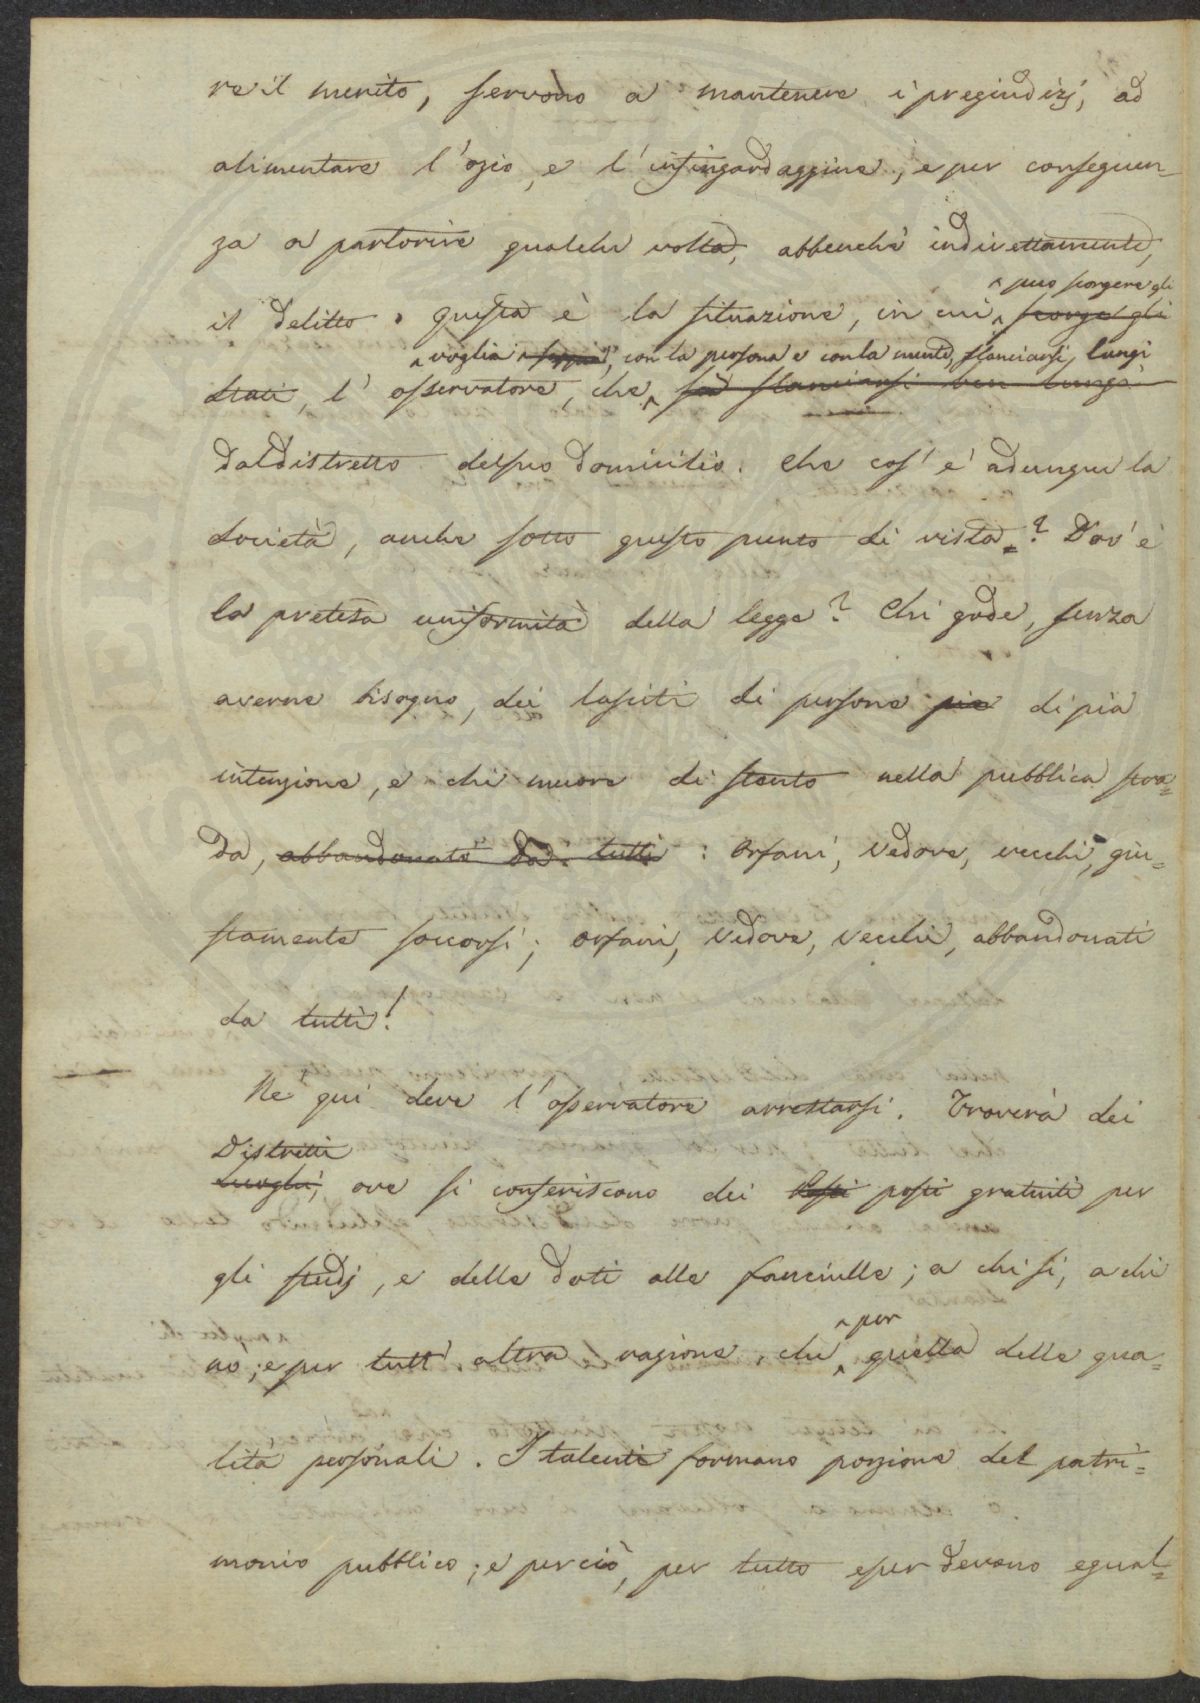 re il merito, servono a mantenere i pregiudizj, ad
alimentare l'ozio, e l'infingardaggine, e per conseguen-
za a partorire qualche volta, abbenchè indirettamente,
^ può scorgere gli
il delitto. questa è la situazione, in cui ^ scorge gli
^ voglia, con la persona e con la mente, slanciarsi, lungi
Stati, l'osservatore, che ^ sà slanciarsi ben lungi
dal distretto del suo domicilio. Che cos'è adunque la
Società, anche sotto questo punto di vista=? Dov'è
la pretesa uniformità della legge? Chi gode, senza
averne bisogno, dei lasciti di persone pie di pia
intenzione, e chi muore di stento nella pubblica stra=
da, abbandonato da tutti: Orfani, Vedove, vecchi, giu=
stamente soccorsi; orfani, Vedove, Vecchi, abbandonati
da tutti!
Nè qui deve l'osservatore arrestarsi. Troverà dei
Distretti
Luoghi, ove si conferiscono dei posti gratuiti per
gli studj, e delle doti alle fanciulle; a chi si, a chi
^ per
no; e per tutt'altra ragione, che ^ quella delle qua=
lità personali. I talenti formano porzione del patri=
monio pubblico; e perciò, per tutto e per devono egual=